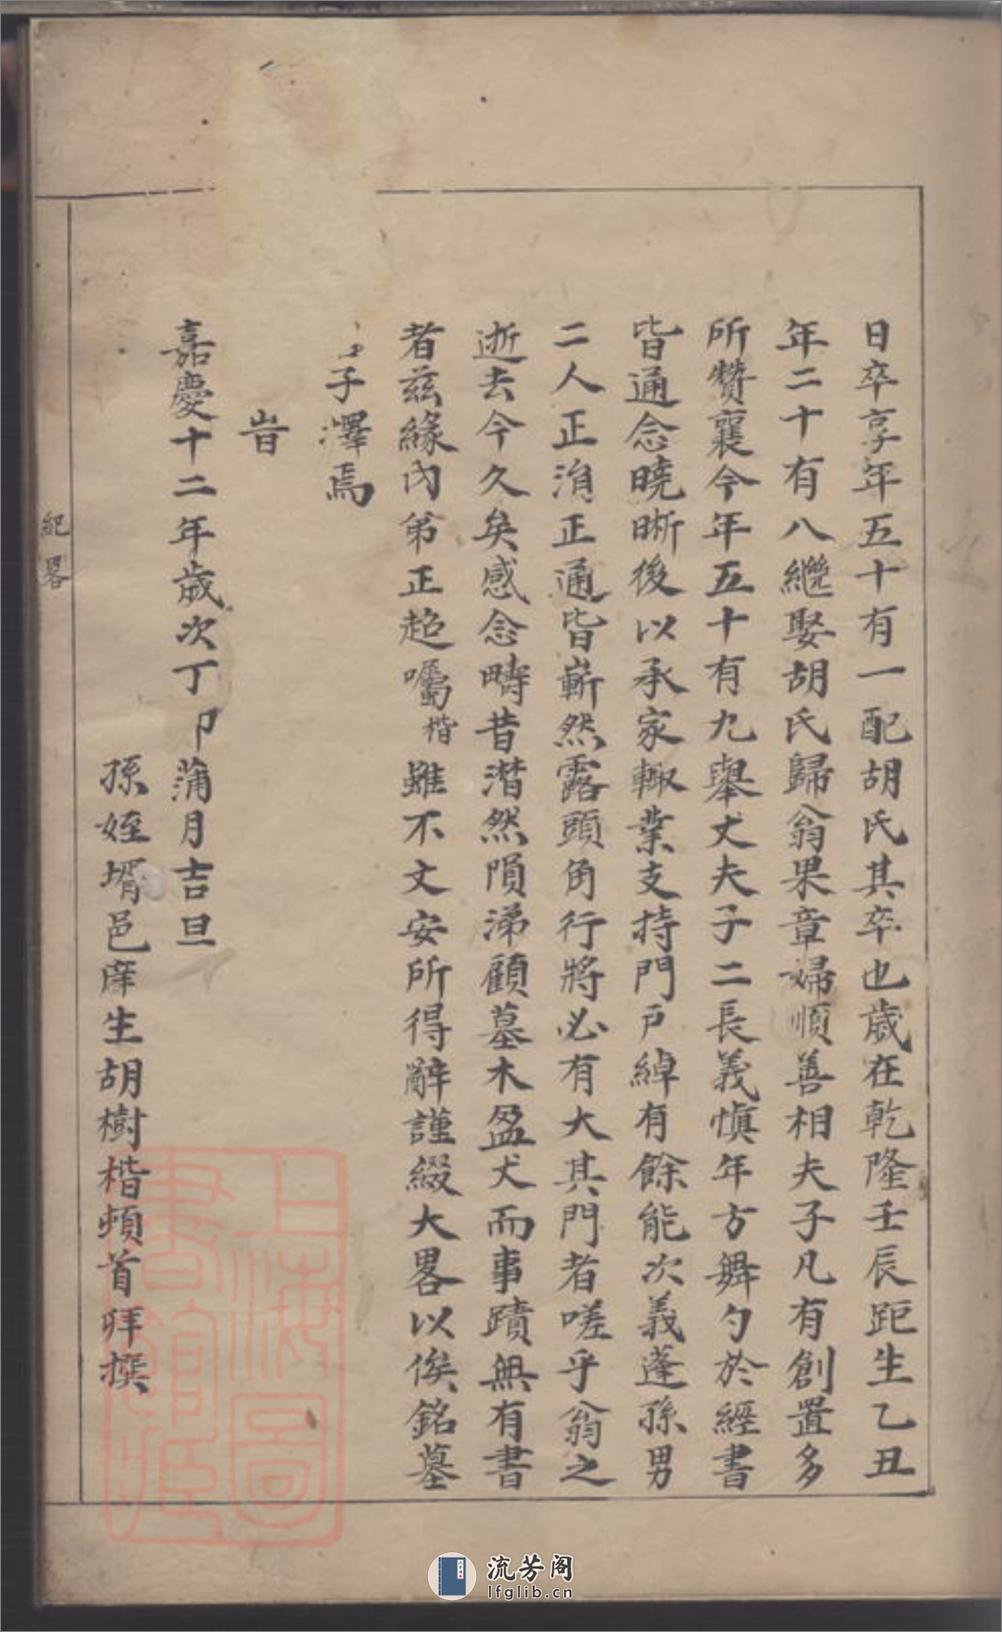 日卒享年五十有一配胡氏其卒也歲在乾隆壬辰距生乙丑
年二十有八繼娶胡氏歸翁果章婦順善相夫子凡有創置多
所贊襄今年五十有九舉丈夫子二長義慎年方舞勺於經書
皆通念曉晰後以承家輙業支持門戶綽有餘能次義蓬孫男
二人正淯正通皆嶄然露頭角行將必有大其門者嗟乎翁之
逝去今久矣感念疇昔潸然隕涕顧墓木盈丈而事蹟無有書
者茲緣內弟正趂囑楷雖不文安所得辭謹綴大畧以俟銘墓
子澤焉
旹
嘉慶十二年歲次丁卯蒲月吉旦
孫姪壻邑庠生胡樹楷頓首拜撰
紀畧
上海圖書館藏
流芳阁
lfglib.cn